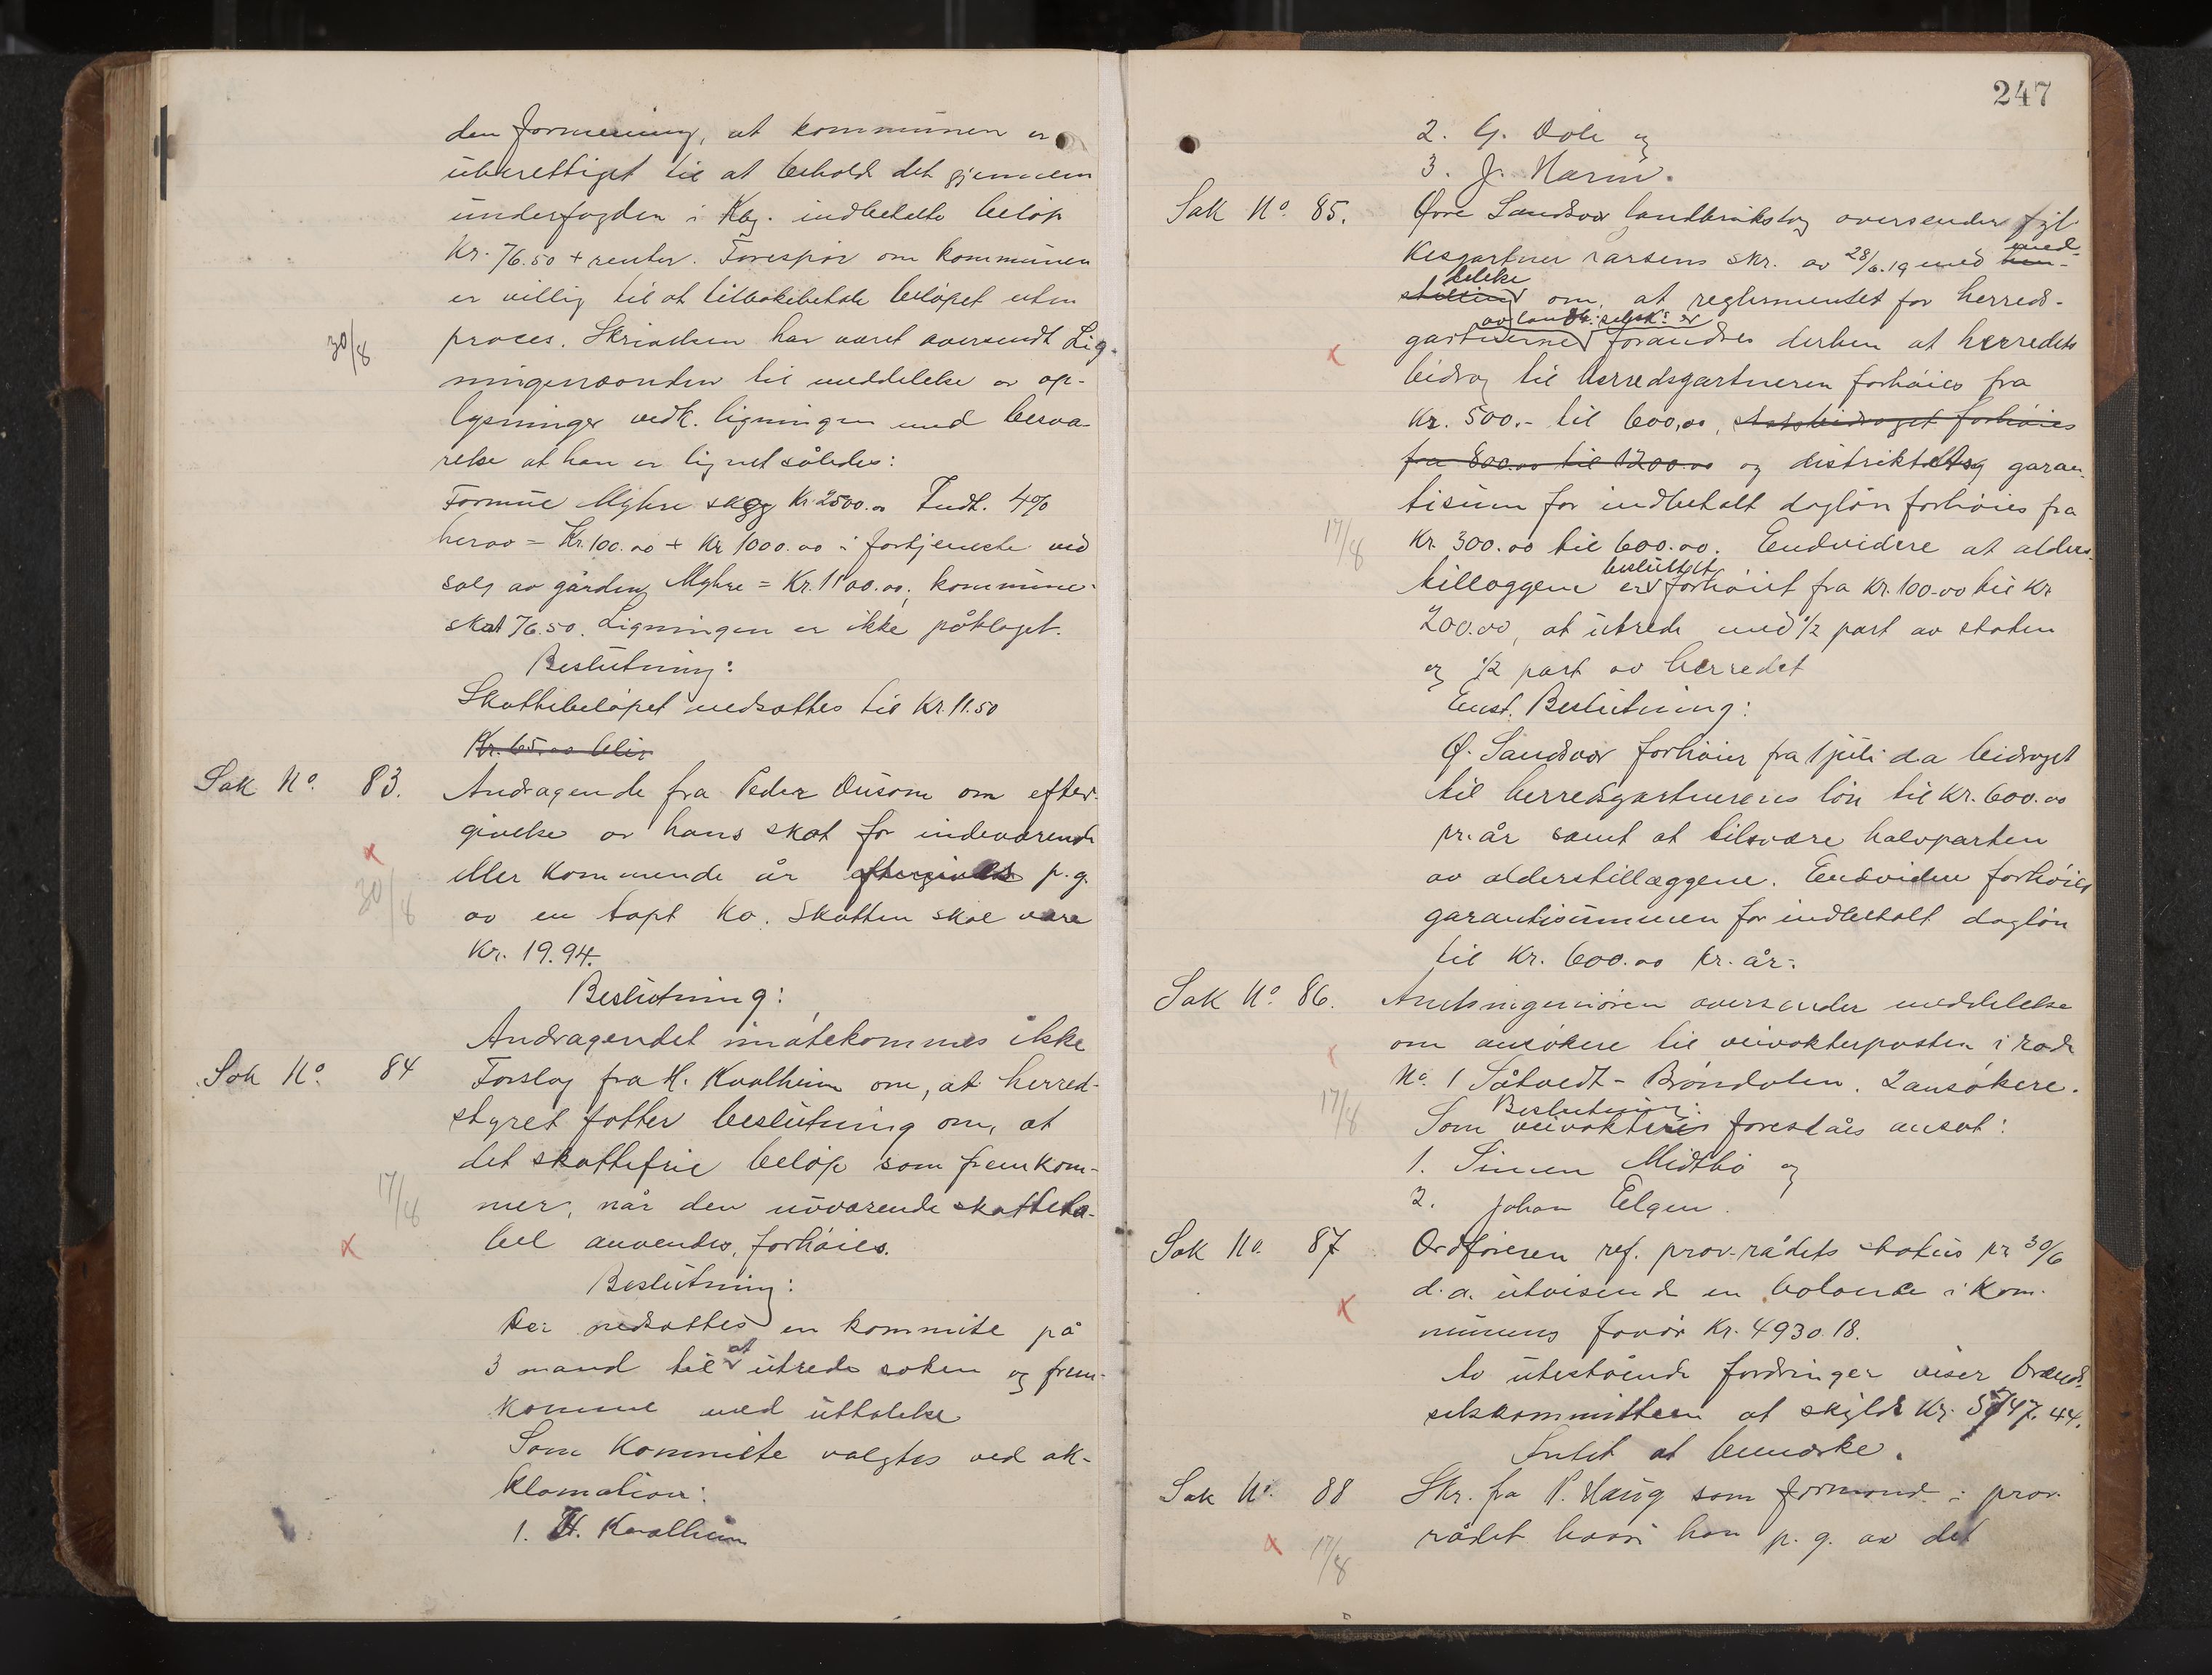 den formening, at kommunen er
uberettiget til at beholde det gjennem
underfogden i Kbg. indbetalte beløp
Kr. 76.50 + renter. Forespør om kommunen
er villig til at tilbakebetale beløpet uten
30/8 proces. Skrivelsen har været oversendt Lig-
ningsnevnden til meddelelse av op-
lysninger vedk. ligningen med besva-
relse at han er lignet således:
Formue Myhre skog Kr 2500.00 Indt. 4%
herav = Kr. 100.00 + Kr 1000.00 i fortjeneste ved
salg av gården Myhre = Kr. 1100.00, kommune-
skat 76.50. Ligningen er ikke påklaget.
Beslutning:
Skattebeløpet nedsættes til Kr. 11.50
Kr. 65.00 blir
Sak No. 83. Andragende fra Peder Ousome om efter-
givelse av hans skat for indeværende
eller kommende år eftergivels p.g.
30/8 av en tapt ko. Skatten skal være
Kr. 19.94.
Beslutning:
Andragendet imøtekommes ikke
Sak No. 84 Forslag fra H. Kvalheim om, at herred-
styret fatter beslutning om, at
det skattefrie beløp som fremkom-
17/8 mer, når den nuværende skatteta-
bel anvendes, forhøies.
Beslutning:
Der nedsattes en kommite på
3 mand til at utrede saken og frem-
komme med uttalelse
Som Kommite valgtes ved ak-
klamation:
1. H. Kvalheim
247
2. G. Dole og
3. J. Narum.
Sak No. 85. Øvre Sandsvær landbrukslag oversender fyl
kesgartner Larsens skr. av 28/6.19 med hen-
med
delelse
stilling om, at reglementet for herreds-
av landbr. selsk: er
gartnerne forandres derhen at herredets
bidrag til herredsgartneren forhøies fra
Kr. 500.- til 600,00, statsbidraget forhøies
fra 800.00 til 1200.00 og distriktets garan-
tisum for indbetalt dagløn forhøies fra
17/8 Kr. 300.00 til 600.00. Endvidere at alders-
besluttet
tillæggene er forhøiet fra Kr. 100.00 til Kr
200.00, at utrede med 1/2 part av staten
og 1/2 part av herredet
Enst. Beslutning:
Ø. Sandsvær forhøier fra 1 juli d a bidraget
til herredsgartnerens løn til Kr. 600.00
pr. år samt at tilsvare halvparten
av alderstillæggene. Endvidere forhøies
garantisummen for indbetalt dagløn
til Kr. 600.00 pr. år.
Sak No. 86. Amtsingeniøren oversender meddelelse
om ansøkere til veivokterposten i rode
No. 1 Såtvedt - Brøndalen. 2 ansøkere.
Beslutning:
17/8 Som veivokteres foreslåes ansat:
1. Simen Midtbø og
2. Johan Elgen.
Sak No. 87 Ordføreren ref. prov.rådets status pr 30/6
d.a. utvisende en balance i kom-
munens favør Kr. 4930.18.
Av utestående fordringer viser brænd-
selskommitteen at skylde Kr. 5747.44.
Intet at bemærke.
Sak No. 88 Skr. fra P. Haug som formand i prov.
17/8 rådet hvori han p.g. av det